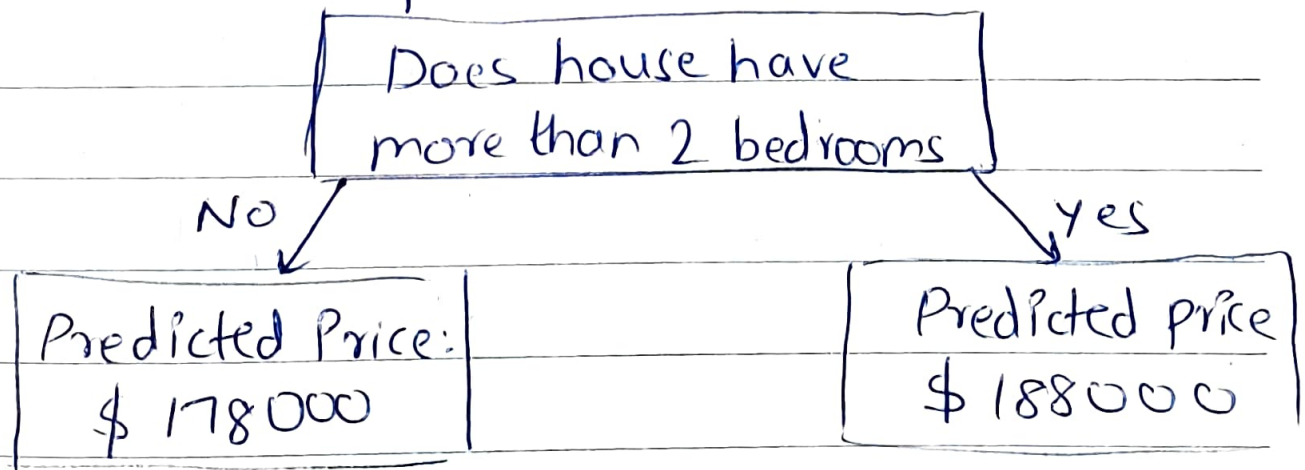 Does house have
more than 2 bedrooms
No
Yes
Predicted Price:
$ 178000
Predicted price
$ 188000